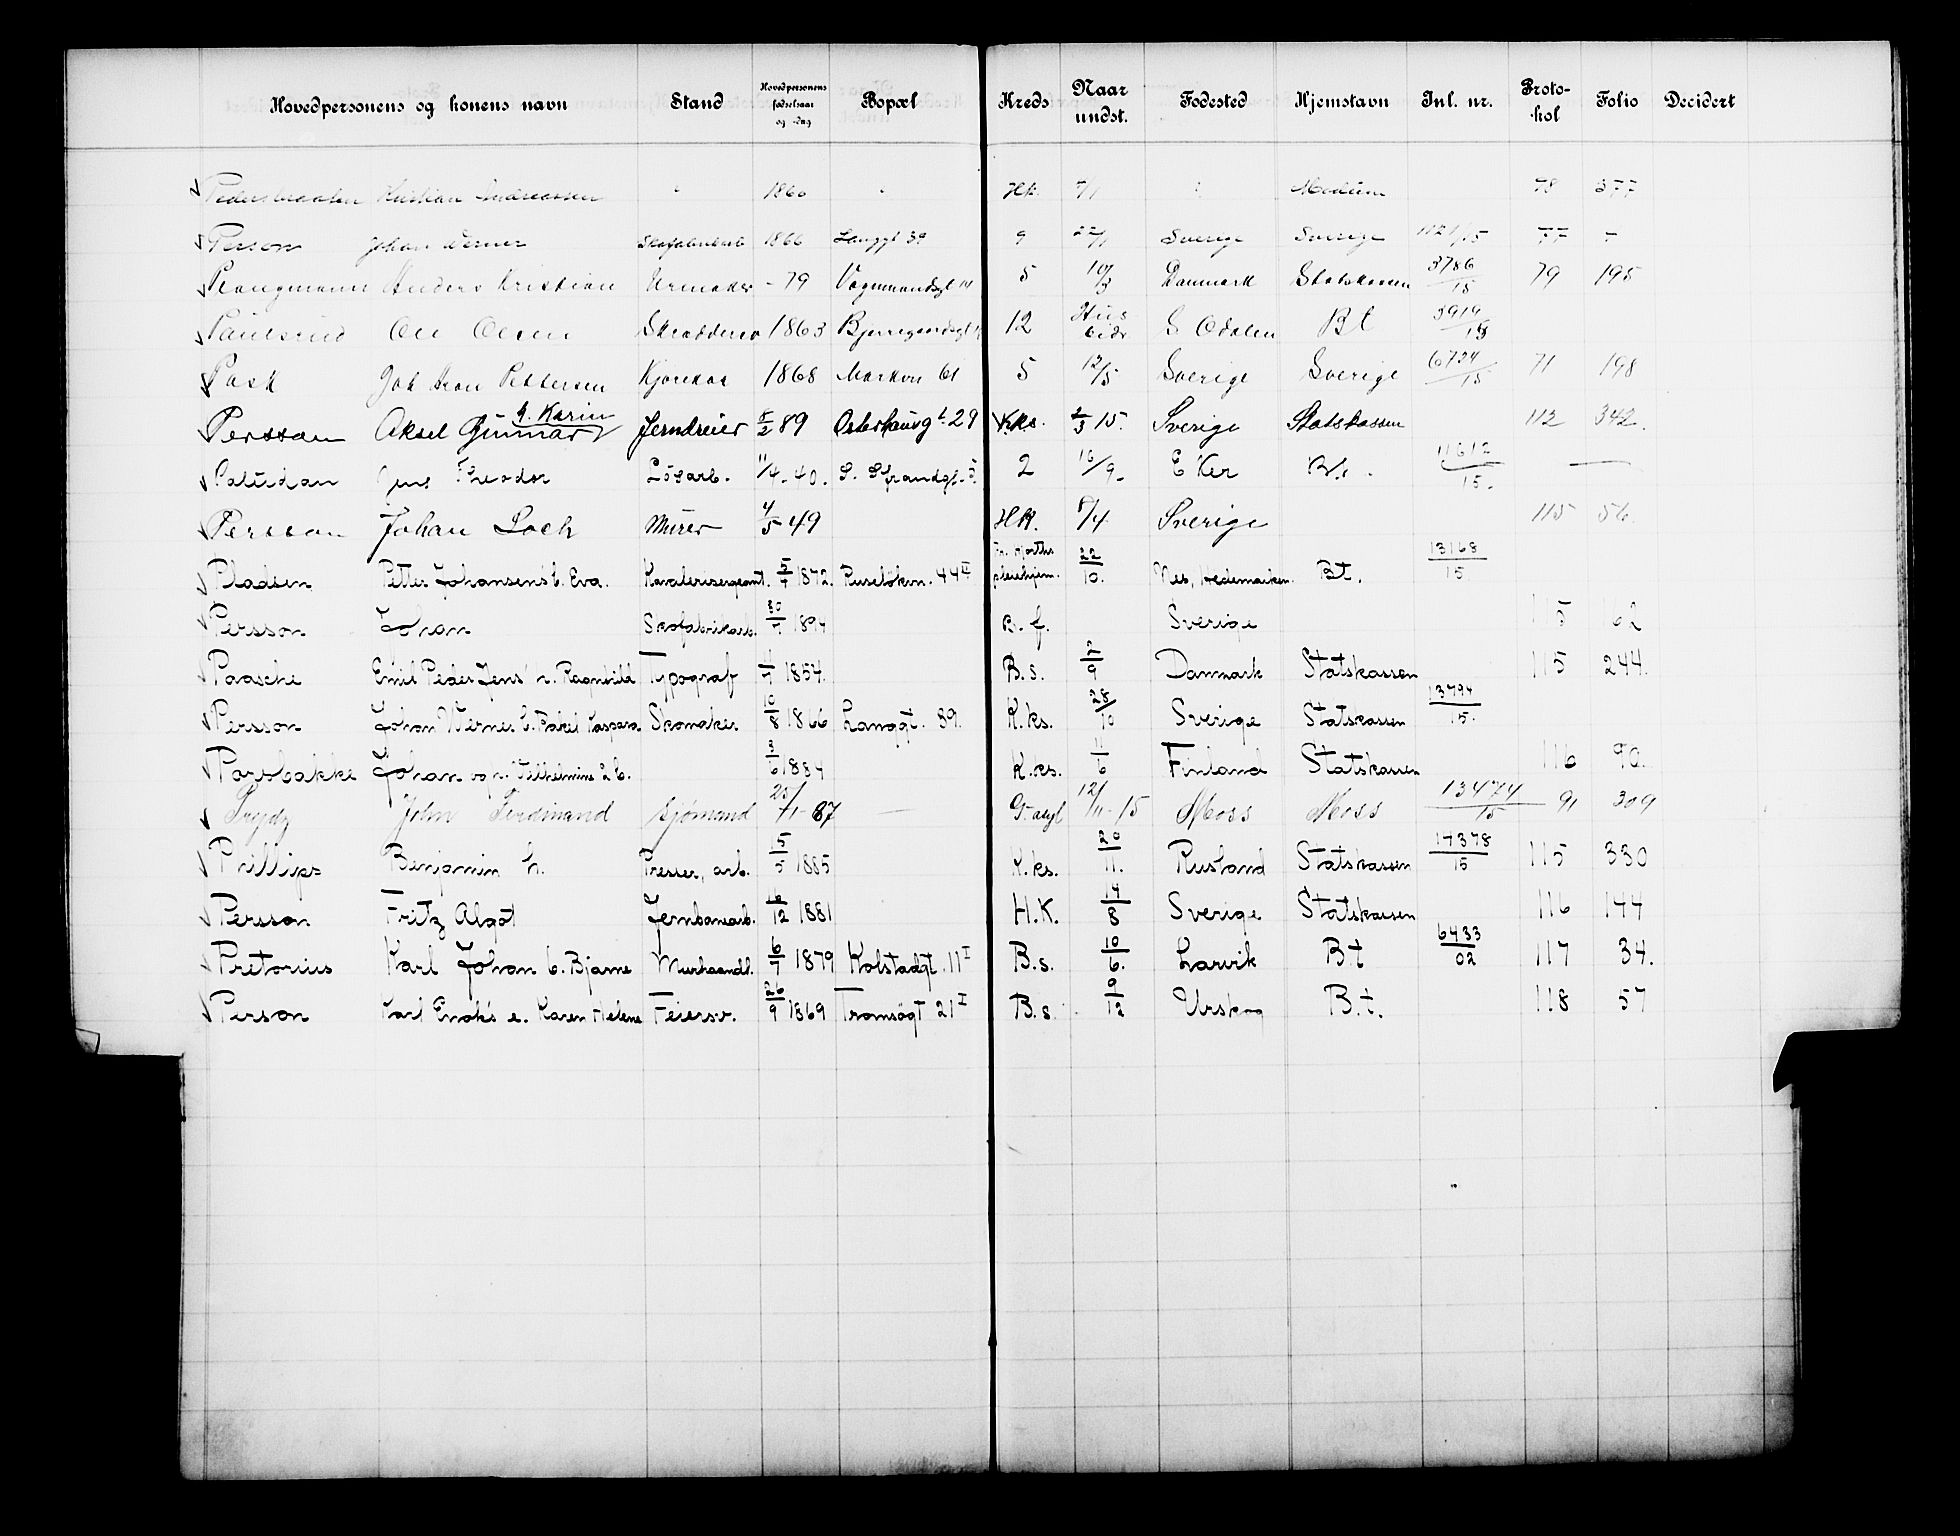 Hovedpersonens og konens navn Stand Hovedpersonens fødselsaar og -dag Bopæl Kreds Naar undst. Fødested Hjemstavn Inl. nr. Proto-kol Folio Decidert
Pedersbraaten Kristian Andreassen " 1860 " Hk. 7/1 Modum 78 377
Person Johan Verner Skofabrikarb 1866 Langgt 39 9 22/1 Sverige Sverige 1121/15 77 -
Plougmann Anders Kristian Urmaker - 79 Vognmandsgt 14 5 10/3 Danmark Statskassen 3786/15 79 195
Paulsrud Ole Olsen Skrædderev 1863 12 Hus bidr S Odalen Bt 3919/15
Pask Joh Aron Pettersen Kjørekar 1868 Marken 61 5 12/5 Sverige Sverige 6724/15 71 198
Persson Aksel Gunnar h. Karin Jerndreier 5/2 89 Osterhausgt. 29 Kks. 2/3 15. Sverige Statskassen 112 342.
Paludan Jens Theodor Løsarb. 11/4-40. S. Strandgt. 5. 2 16/9- Eker B.t. 11612/15. —
Persson Johan Loch Murer 4/5 49 HK. 8/4. Sverige 115 56.
Pladsen Petter Johansens b. Eva. Kavalerisergeant. 5/7 1872. Ruseløkv. 44 II pleiehjem. 22/10. Nes, Hedemarken. Bt. 13168/15
Persson Johan Skofabrikarb. 30/7 1894 B. f. Sverige 115 62
Paasche Emil Peder Jens' h. Ragnhild Typograf 4/7 1854. B. s. 2/9 Danmark Statskassen 115 244.
Persson Johan Werner b. Fakel Kaspara. Skomaker 10/8 1866 Langgt. 89. K.ks. 28/10 Sverige Statskassen 13794/15.
Parsbakke Johan og h. Vilhelmine 2 b. 3/6 1884 K.ks. 11/6 Finland Statskassen 116 90.
Prydz John Ferdinand Sjømand 25/1-87 — G. asyl 12/11-15 Moss Moss 13474/15 91 309
Phillips Benjamin h. Presser, arb. 15/5 1885 K.ks. 20/11. Rusland Statskassen 14378/15 115 330
Persson Fritz Algot Jernbanearb. 16/12 1881 H.K. 14/8 Sverige Statskassen 116 144
Pretorius Karl Johan b. Bjarne Murhaandl. 6/7 1879 Kolstadgt. 11 I B.s. 10/6. Larvik Bt 6433/02 117 34.
Person Karl Enok's e. Karen Helene Feiersv. 26/9 1869 Tromsøgt 21 I B.s. 9/12 Urskog B.t. 118 57